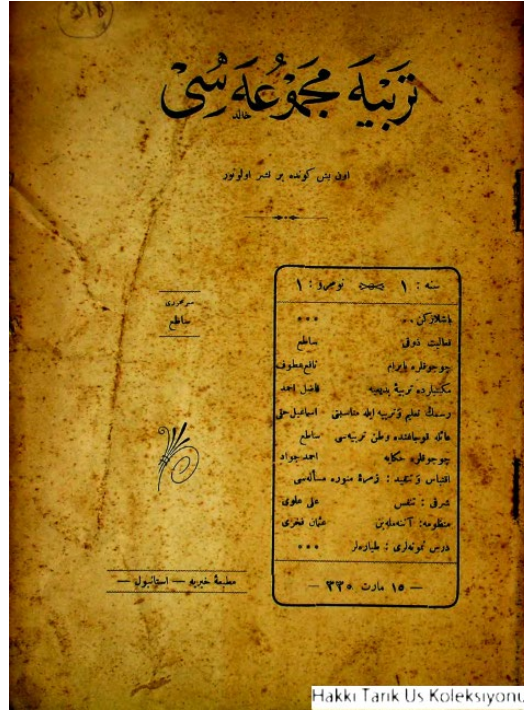 318
تربيه مجموعه سى
خالد
اون بش كونده بر نشر اولونور
سنه : ١ نومرو : ١
باشلاركن . . * * *
فعاليت ذوقى ساطع
چوجوقلره بايرام نافع عطوف
مكتبلرده تربيۀ بديعيه فاضل احمد
رسمك تعليم و تربيه ايله مناسبتى اسماعيل حقى
عائله قوجاغنده وطن تربيه‌سى ساطع
چوجوقلره حكايه احمد جواد
اقتباس و تنقيد : زمرۀ منوره مسأله‌سى
شرقى : تنفس على علوى
منظومه : آننه‌مله‌بن عثمان فخرى
درس نمونه‌لرى : طياره‌لر * * *
— ١٥ مارت ٣٣٠ —
سر محررى
ساطع
مطبعۀ خيريه — استانبول —
Hakkı Tarık Us Koleksiyonu